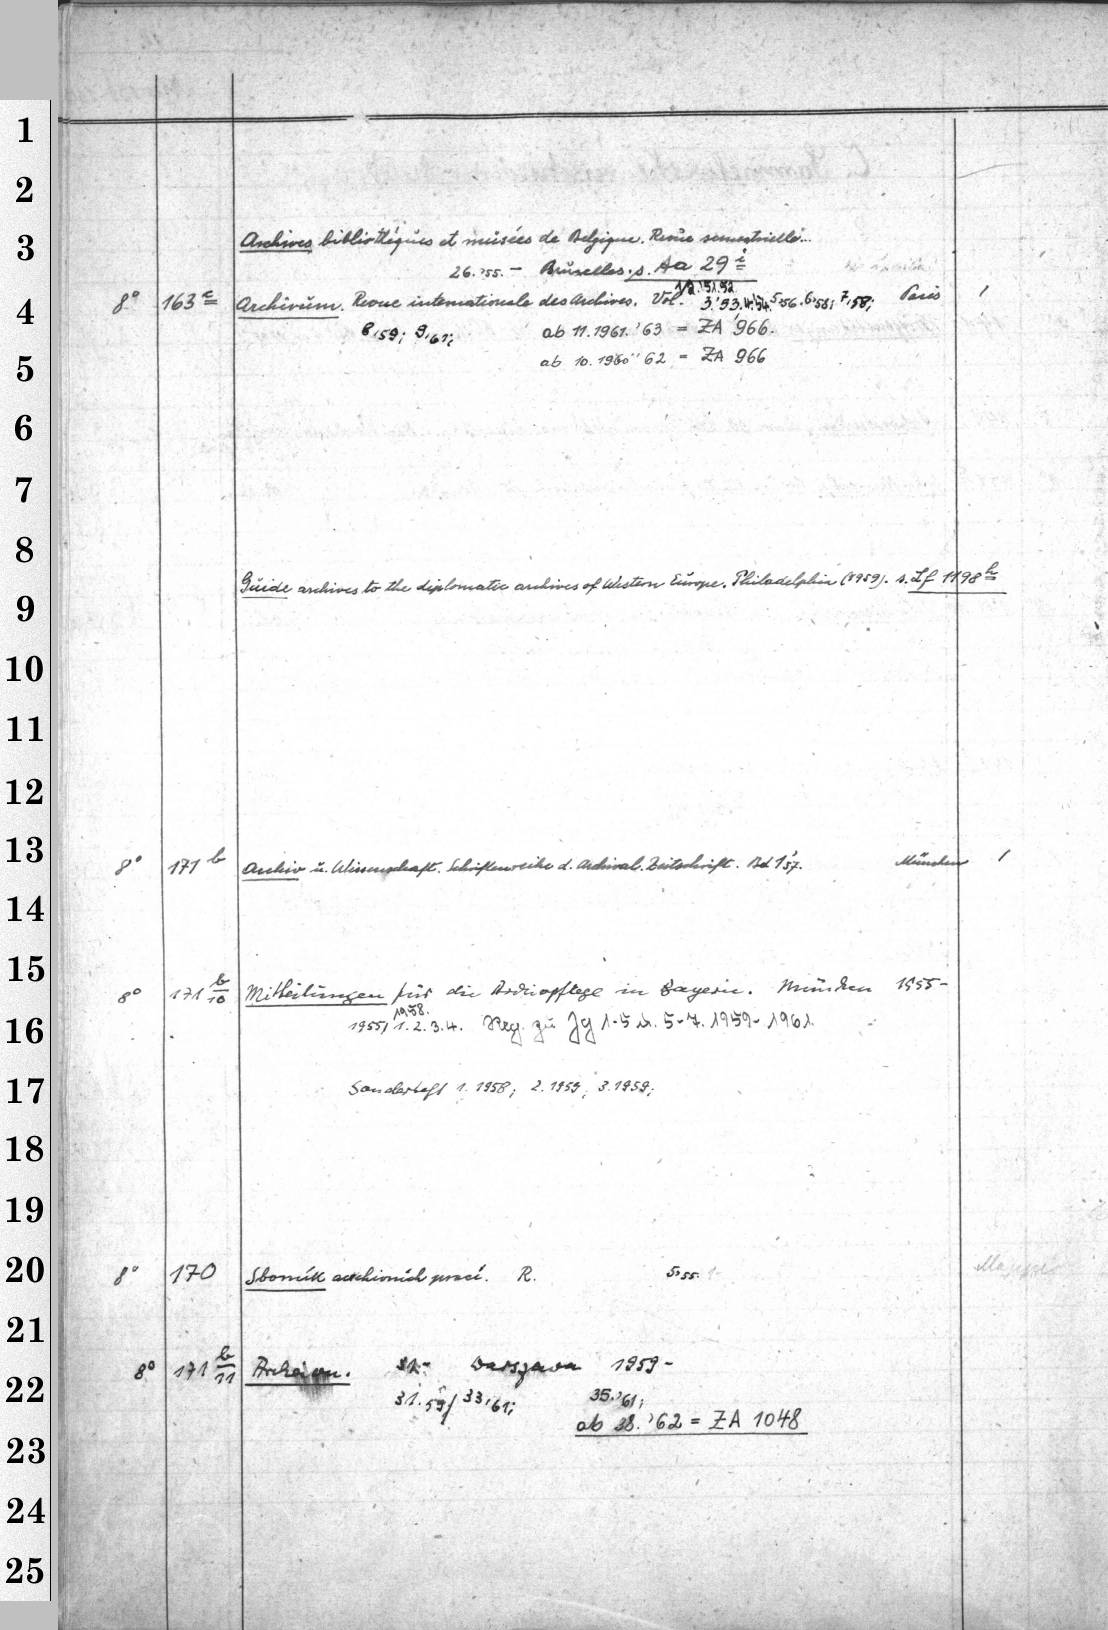 1
2
3
Archives bibliothéques et musées de Belgique. Revue semestrielle...
26.'55. – Bruxelles. s. Aa 29 i
4
8° 163 c Archivum. Revue internationale des Archives. Vol. 1/2.'51.52 3.'53.4.'54.5.'56.6.'58; 7.'58; Paris 1
8.'59; 9.'61; ab 11.1961.'63 = ZA 966.
5
ab 10.1960''62 = ZA 966
6
7
8
Guide archives to the diplomatic archives of Western Europe. Philadelphia (1959). s. Lf 1198 h
9
10
11
12
13
8° 171 b Archiv u. Wissenschaft. Schriftenreihe d. Archival. Zeitschrift. Bd 1.'57. München 1
14
15
8° 171 b/10 Mitteilungen für die Archivpflege in Bayern. München 1955-
16
1955/1958. 1.2.3.4. Reg. zu Jg 1-5 u. 5-7. 1959-1961.
17
Sonderheft 1.1958; 2.1959; 3.1959;
18
19
20
8° 170 Sborník archivních prací. R. 5.'55.
21
8° 171 b/11 Archeion. 31- Warszawa 1959-
22
31.'59/ 33.'61; 35.'61;
ab 38.'62 = ZA 1048
23
24
25